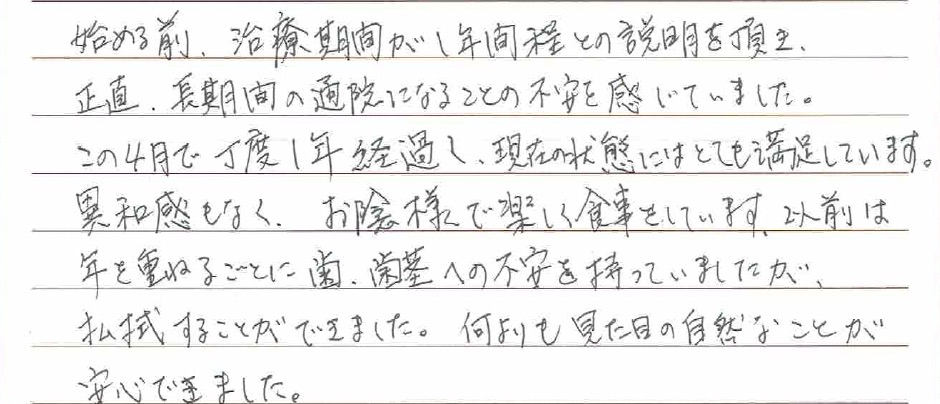 始める前、治療期間が1年間程との説明を頂き、
正直、長期間の通院になることの不安を感じていました。
この4月で丁度1年経過し、現在の状態にはとても満足しています。
異和感もなく、お陰様で楽しく食事をしています。以前は
年を重ねるごとに歯、歯茎への不安を持っていましたが、
払拭することができました。何よりも見た目の自然なことが
安心できました。